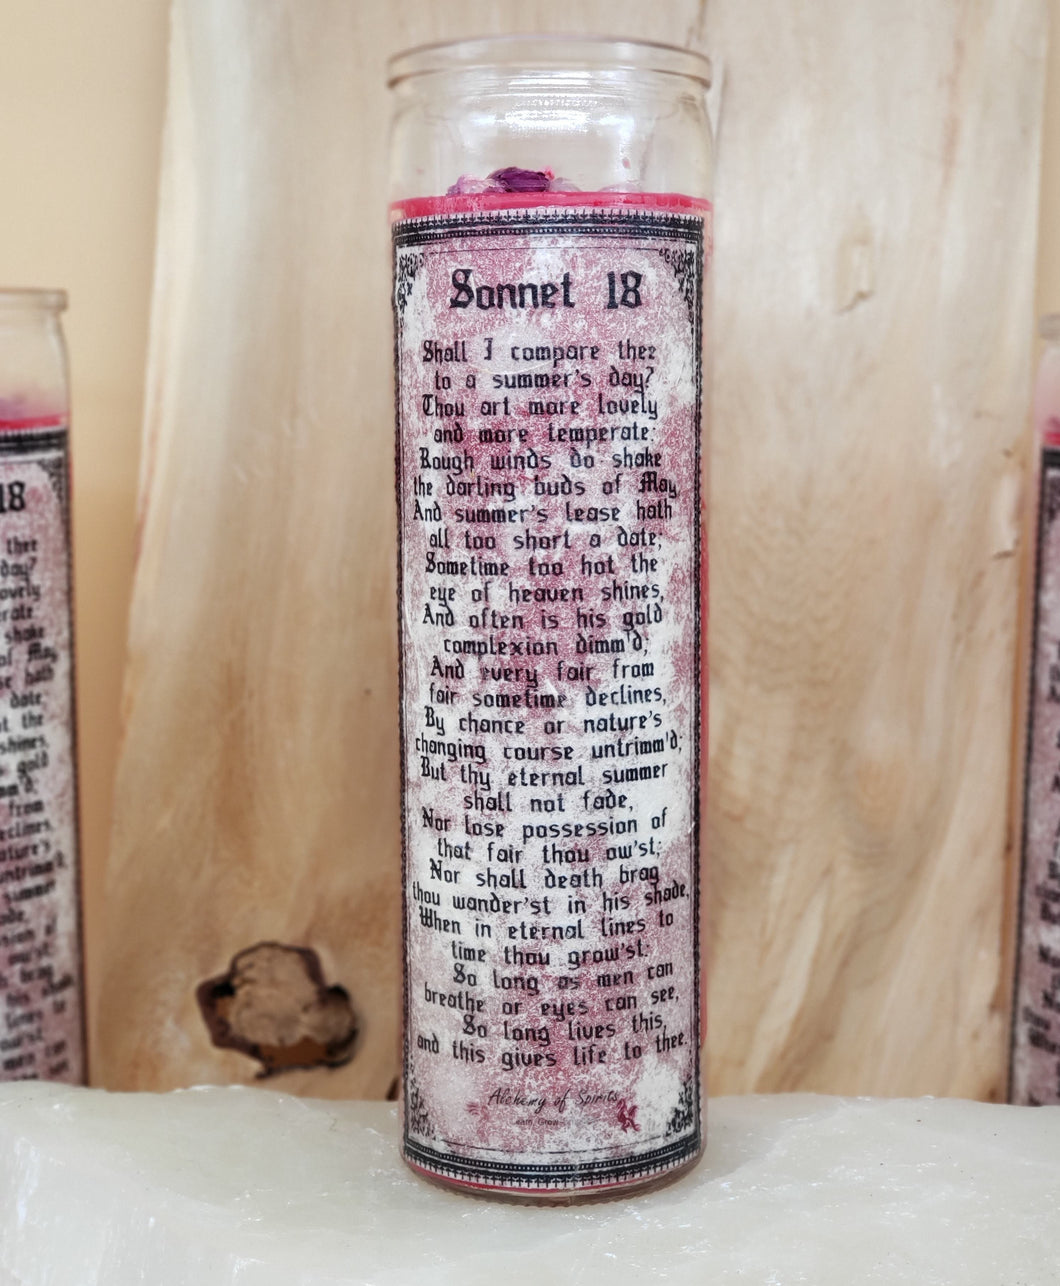 Sonnet 18
Shall I compare thee
to a summer's day?
Thou art more lovely
and more temperate:
Rough winds do shake
the darling buds of May,
And summer's lease hath
all too short a date;
Sometime too hot the
eye of heaven shines,
And often is his gold
complexion dimm'd;
And every fair from
fair sometime declines,
By chance or nature's
changing course untrimm'd;
But thy eternal summer
shall not fade,
Nor lose possession of
that fair thou ow'st;
Nor shall death brag
thou wander'st in his shade,
When in eternal lines to
time thou grow'st:
So long as men can
breathe or eyes can see,
So long lives this,
and this gives life to thee.
Alchemy of Spirits
18
thee
day?
lovely
shake
of May,
hath
date;
the
shines,
gold
from
declines,
nature's
untrimm'd;
summer